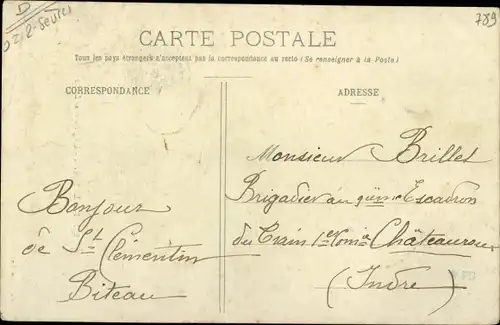 D
2-Sèvres
789
CARTE POSTALE
Tous les pays étrangers n'acceptent pas la correspondance au recto (Se renseigner à la Poste)
CORRESPONDANCE
ADRESSE
Bonjour
de St
Clémentin
Biteau
Monsieur Brillet
Brigadier au 9ème Escadron
du Train Châteauroux
(Indre)